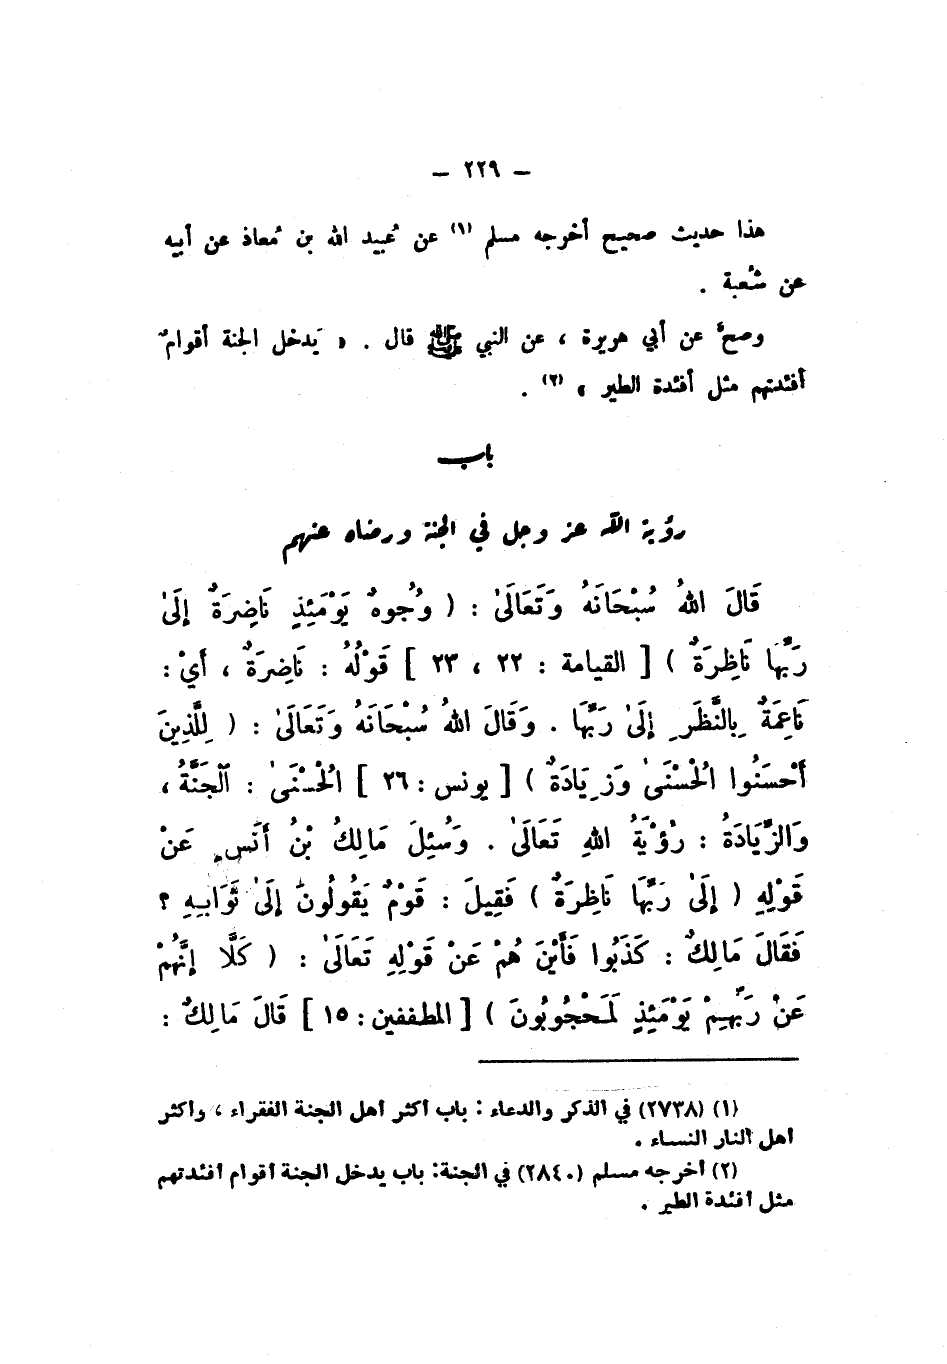 – ٢٢٩ –
هذا حديث صحيح أخرجه مسلم (١) عن عُبيد الله بن مُعاذ عن أبيه
عن شُعبة .
وصحَّ عن أبي هريرة ، عن النبي ﷺ قال . « يَدخل الجنة أقوامٌ
أفئدتهم مثل أفئدة الطير » (٢) .
باب
رؤية الله عز وجل في الجنة ورضاه عنهم
قَالَ اللهُ سُبْحَانَهُ وَتَعَالَىٰ : ( وُجُوهٌ يَوْمَئِذٍ نَاضِرَةٌ إِلَىٰ
رَبِّهَا نَاظِرَةٌ ) [ القيامة : ٢٢ ، ٢٣ ] قَوْلُهُ : نَاضِرَةٌ ، أَيْ :
نَاعِمَةٌ بِالنَّظَرِ إِلَىٰ رَبِّهَا . وَقَالَ اللهُ سُبْحَانَهُ وَتَعَالَىٰ : ( لِلَّذِينَ
أَحْسَنُوا الْحُسْنَىٰ وَزِيَادَةٌ ) [ يونس : ٢٦ ] الْحُسْنَىٰ : ٱلْجَنَّةُ ،
وَالزِّيَادَةُ : رُؤْيَةُ اللهِ تَعَالَىٰ . وَسُئِلَ مَالِكُ بْنُ أَنَسٍ عَنْ
قَوْلِهِ ( إِلَىٰ رَبِّهَا نَاظِرَةٌ ) فَقِيلَ : قَوْمٌ يَقُولُونَ إِلَىٰ ثَوَابِهِ ؟
فَقَالَ مَالِكٌ : كَذَبُوا فَأَيْنَ هُمْ عَنْ قَوْلِهِ تَعَالَىٰ : ( كَلَّا إِنَّهُمْ
عَنْ رَبِّهِمْ يَوْمَئِذٍ لَمَحْجُوبُونَ ) [ المطففين : ١٥ ] قَالَ مَالِكٌ :
(١) (٢٧٣٨) في الذكر والدعاء : باب أكثر أهل الجنة الفقراء ، وأكثر
أهل النار النساء .
(٢) أخرجه مسلم (٢٨٤٠) في الجنة: باب يدخل الجنة أقوام أفئدتهم
مثل أفئدة الطير .